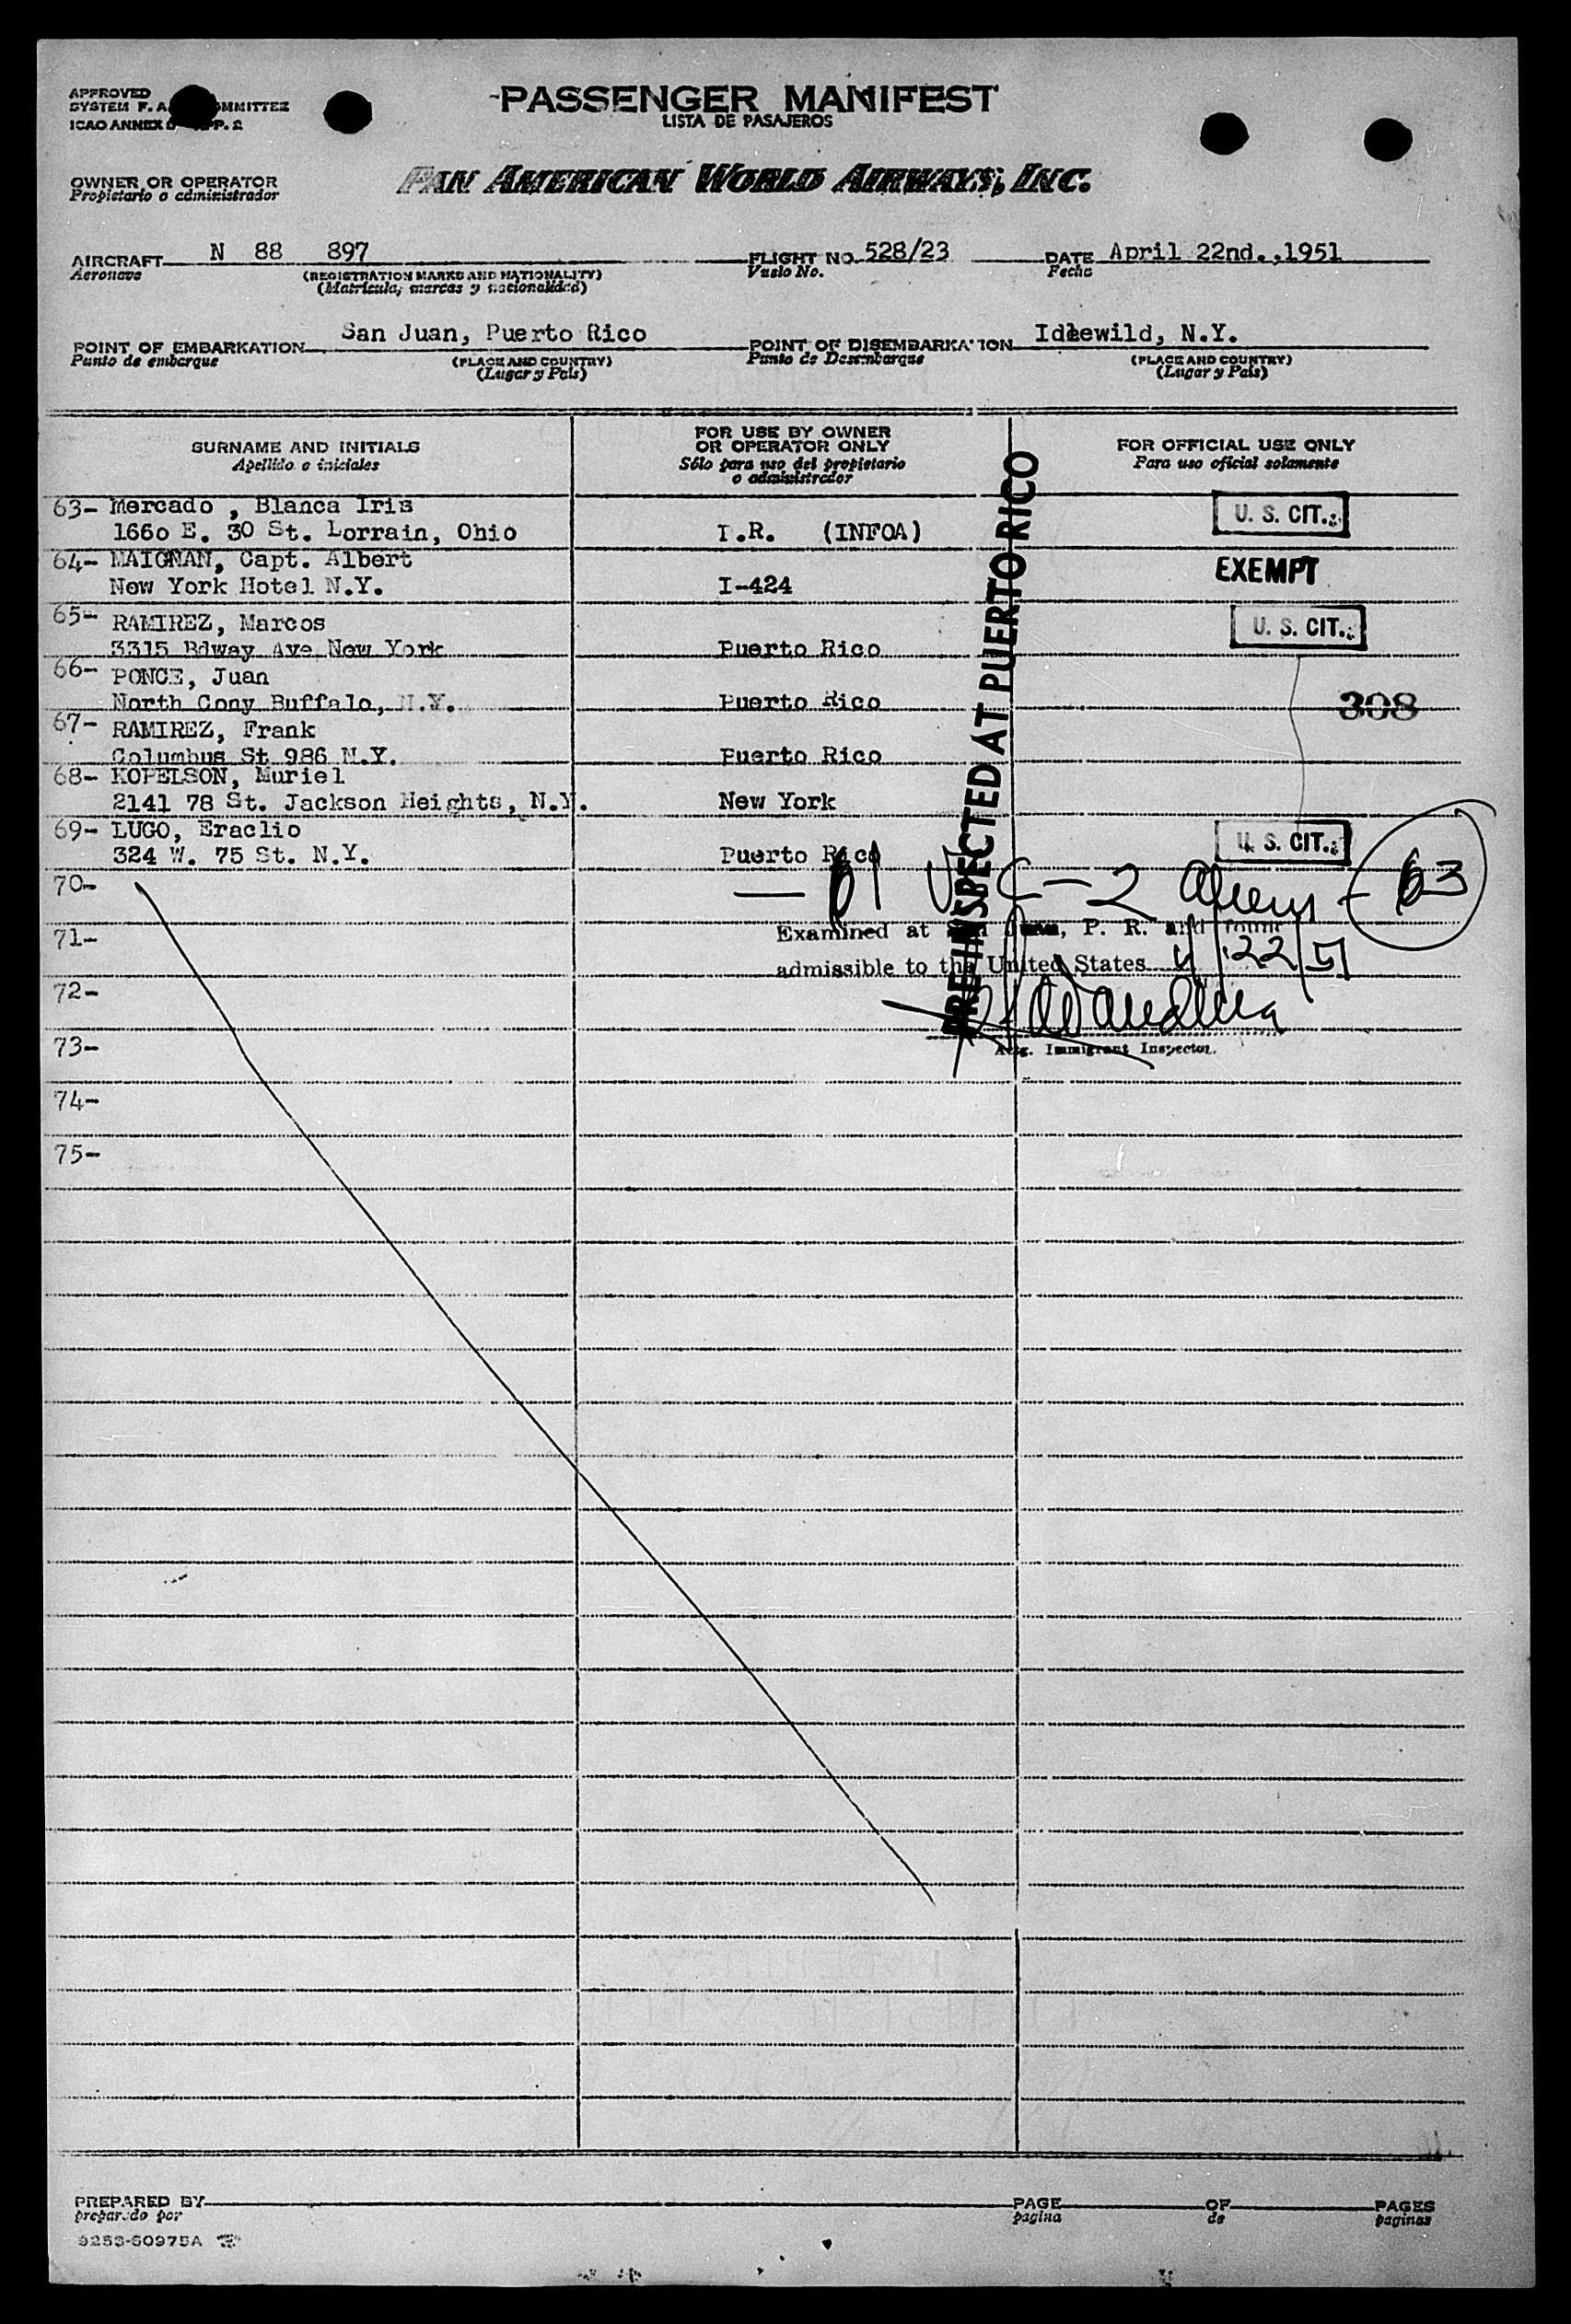 APPROVED
SYSTEM F. A. COMMITTEE
ICAO ANNEX APP. 2
PASSENGER MANIFEST
LISTA DE PASAJEROS
OWNER OR OPERATOR
Propietario o administrador
PAN AMERICAN WORLD AIRWAYS, INC.
AIRCRAFT N 88 897
Aeronave
(REGISTRATION MARKS AND NATIONALITY)
(Matrícula, marcas y nacionalidad)
FLIGHT NO. 528/23
Vuelo No.
DATE April 22nd.,1951
Fecha
POINT OF EMBARKATION San Juan, Puerto Rico
Punto de embarque
(PLACE AND COUNTRY)
(Lugar y País)
POINT OF DISEMBARKATION Idlewild, N.Y.
Punto de Desembarque
(PLACE AND COUNTRY)
(Lugar y País)
SURNAME AND INITIALS
Apellido e iniciales
FOR USE BY OWNER
OR OPERATOR ONLY
Sólo para uso del propietario
o administrador
FOR OFFICIAL USE ONLY
Para uso oficial solamente
63- Mercado , Blanca Iris
1660 E. 30 St. Lorrain, Ohio I.R. (INFOA) U. S. CIT.
64- MAIGNAN, Capt. Albert
New York Hotel N.Y. I-424 EXEMPT
65- RAMIREZ, Marcos
3315 Bdway Ave New York Puerto Rico U. S. CIT.
66- PONCE, Juan
North Cony Buffalo, N.Y. Puerto Rico 308
67- RAMIREZ, Frank
Columbus St 986 N.Y. Puerto Rico
68- KOPELSON, Muriel
2141 78 St. Jackson Heights, N.Y. New York
69- LUGO, Eraclio
324 W. 75 St. N.Y. Puerto Rico U. S. CIT.
PRE-INSPECTED AT PUERTO RICO
70-
— 61 U S C — 2 Aliens - 63
71-
Examined at San Juan, P. R. and found
admissible to the United States 4/22/51
72-
73-
Actg. Immigrant Inspector.
74-
75-
PREPARED BY
preparado por
PAGE OF PAGES
pagina de paginas
9253-60975A